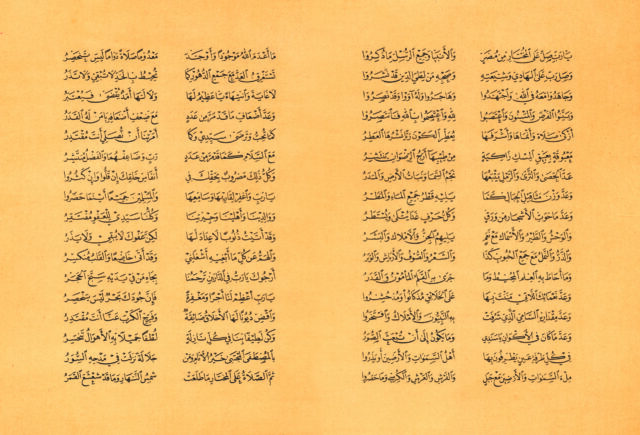 يا رب صل على المختار من مضر والأنبيا وجميع الرسل ما ذكروا
وصل رب على الهادي وشيعته وصحبه من لطي الدين قد نشروا
وجاهدوا معه في الله واجتهدوا وهاجروا وله آووا وقد نصروا
وبينوا الفرض والمسنون واعتصبوا لله واعتصموا بالله فانتصروا
أزكى صلاة وأنماها وأشرفها يعطر الكون ريا نشرها العطر
معبوقة بعبيق المسك زاكية من طيبها أرج الرضوان ينتشر
عد الحصى والثرى والرمل يتبعها نجم السما ونبات الأرض والمدر
وعد وزن مثاقيل الجبال كما يليه قطر جميع الماء والمطر
وعد ما حوت الأشجار من ورق وكل حرف غدا يتلى ويستطر
والوحش والطير والأسماك مع نعم يليهم الجن والأملاك والبشر
والذر والنمل مع جمع الحبوب كذا والشعر والصوف والأرياش والوبر
وما أحاط به العلم المحيط وما جرى به القلم المأمور والقدر
وعد نعمائك اللاتي مننت بها على الخلائق مذ كانوا ومذ حشروا
وعد مقداره السامي الذي شرفت به النبيون والأملاك وافتخروا
وعد ما كان في الأكوان يا سندي وما يكون إلى أن تبعث الصور
في كل طرفة عين يطرفون بها أهل السموات والأرضين أو يذروا
ملء السموات والأرضين مع جبل والفرش والعرش والكرسي وما حصروا
ما أعدم الله موجودا وأوجد معدوما صلاة دواما ليس تنحصر
تستغرق العد مع جمع الدهور كما تحيط بالحد لا تبقي ولا تذر
لا غاية وانتهاء يا عظيم لها ولا لها أمد يقضى فيعتبر
وعد أضعاف ما قد مر من عدد مع ضعف أضعافه يا من له القدر
كما تحب وترضى سيدي وكما أمرتنا أن نصلي أنت مقتدر
مع السلام كما قد مر من عدد رب وضاعفهما والفضل منتشر
وكل ذلك مضروب بحقك في أنفاس خلقك إن قلوا وإن كثروا
يا رب واغفر لقاريها وسامعها والمسلمين جميعا أينما حضروا
ووالدينا وأهلينا وجيرتنا وكلنا سيدي للعفو مفتقر
وقد أتيت ذنوبا لا عداد لها لكن عفوك لا يبقي ولا يذر
والهم عن كل ما أبغيه أشغلني وقد أتى خاضعا والقلب منكسر
أرجوك يا رب في الدارين ترحمنا بجاه من في يديه سبح الحجر
يا رب أعظم لنا أجرا ومغفرة فإن جودك بحر ليس ينحصر
واقض ديونا لها الأخلاق ضائقة وفرج الكرب عنا أنت مقتدر
وكن لطيفا بنا في كل نازلة لطفا جميلا به الأهوال تنحسر
بالمصطفى المجتبى خير الأنام ومن جلالة نزلت في مدحه السور
ثم الصلاة على المختار ما طلعت شمس النهار وما قد شعشع القمر